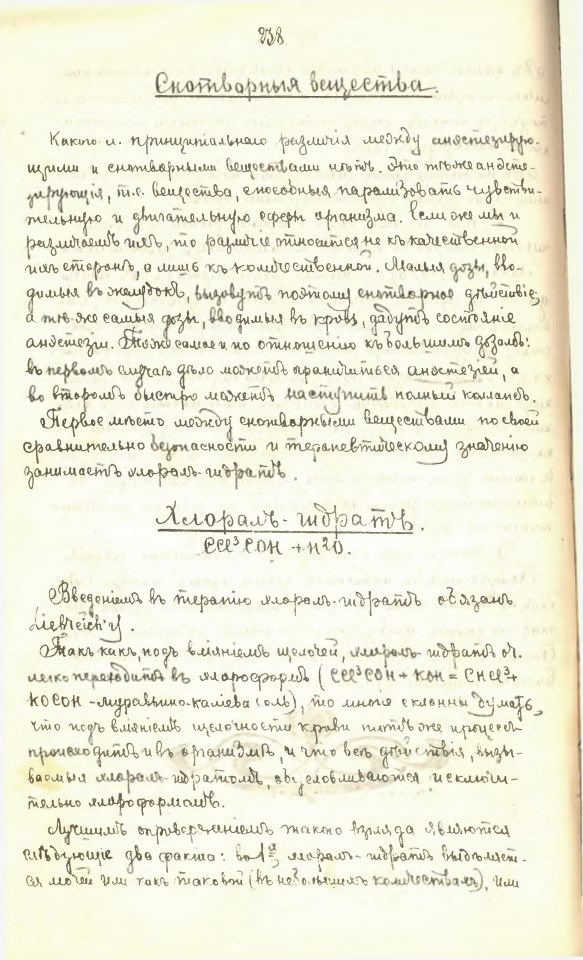 238
Снотворныя вещества.
Какого-л. принципіальнаго различія между анэстезирую-
щими и снотворными веществами нѣтъ. Это тѣ же анэсте-
зирующія, т.е. вещества, способныя парализовать чувстви-
тельную и двигательную сферы организма. Если же мы и
различаемъ ихъ, то различіе относится не къ качественной
ихъ сторонѣ, а лишь къ количественной. Малыя дозы, вво-
димыя въ желудокъ, вызовутъ поэтому снотворное дѣйствіе;
а тѣ-же самыя дозы, вводимыя въ кровь, дадутъ состояніе
анэстезіи. Тоже самое и по отношенію къ большимъ дозамъ:
въ первомъ случаѣ дѣло можетъ ограничиться анэстезіей, а
во второмъ быстро можетъ наступить полный коллапсъ.
Первое мѣсто между снотворными веществами по своей
сравнительно безопасности и терапевтическому значенію
занимаетъ хлоралъ-гидратъ.
Хлоралъ-гидратъ.
CCl³COH + H²O.
Введеніемъ въ терапію хлоралъ-гидратъ обязанъ
Liebreich'у.
Такъ какъ, подъ вліяніемъ щелочей, хлоралъ-гидратъ оч.
легко переходитъ въ хлороформъ (CCl³COH + KOH = CHCl³+
KOCOH - муравьино-каліева соль), то многіе склонны думать,
что подъ вліяніемъ щелочности крови тотъ же процессъ
происходитъ и въ организмѣ, и что всѣ дѣйствія, вызы-
ваемыя хлоралъ-гидратомъ, обусловливаются исключи-
тельно хлороформомъ.
Лучшимъ опроверженіемъ такого взгляда являются
слѣдующіе два факта: во 1ыхъ, хлоралъ-гидратъ выдѣляет-
ся мочей или какъ таковой (въ небольшихъ количествахъ), или